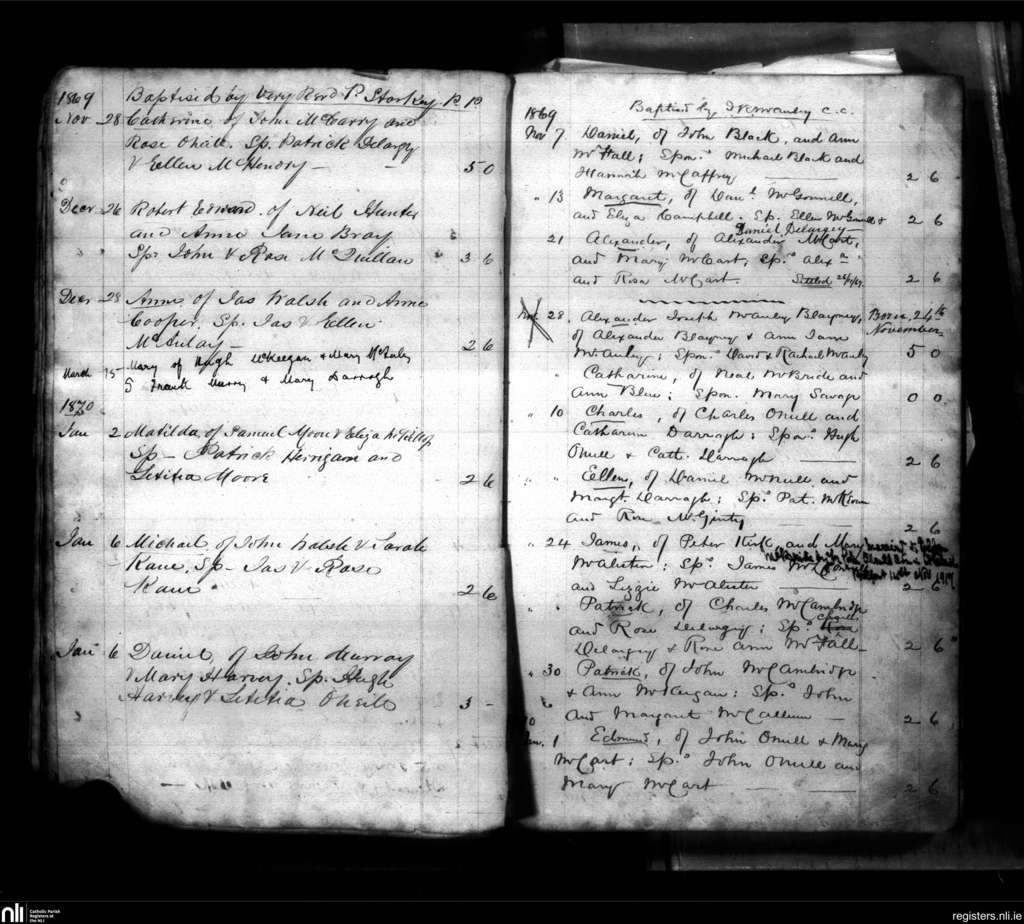 1869 Baptised by Very Revd P. Starkey P. P.
Nov 28 Catherine of John McCarry and
Rose Ohall. Sp. Patrick Delargy
& Ellen McHendry — 5 0
Decr 26 Robert Edward of Neil Hunter
and Anne Jane Bray
Sp. John & Rose McQuillan 3 6
Decr 28 Anne of Jas Walsh and Anne
Cooper. Sp. Jas & Ellen
McAulay — 2 6
March 15 Mary of Hugh McKeegan & Mary McAuley
S Frank Murry & Mary Darragh
1870
Jan 2 Matilda of Samuel Moore & Eliza
Sp — Patrick and
Letitia Moore 2 6
Jan 6 Michael of John Walsh & Sarah
Kane, Sp — Jas & Rose
Kane 2 6
Jan 6 Daniel of John Murray
& Mary Harvey. Sp. Hugh
Harvey & Letitia Oneile 3 -
1869 Baptised by C.C.
Nov 7 Daniel, of John Black, and Ann
McFall; Spon. Michael Black and
Hannah McCaffrey 2 6
" 13 Margaret, of Danl. McGonnell,
and Eliza Campbell. Sp. Ellen McGonnell & 2 6
Daniel Delargey
21 Alexander, of Alexander McCart,
and Mary McCart, Sp. Alexr
and Rosa McCart. Settled 2 6
Nov. 28. Alexander Joseph McAuley Blayney, Born, 24th
of Alexander Blayney & Ann Jane November
McAuley; Spon. David & Rachael McAuley 5 0
" Catharine, of Neal McBride and
Ann Blue; Spon. Mary Savage 0 0
" 10 Charles, of Charles Oneill and
Catharine Darragh; Spon. Hugh
Oneill & Cath. Darragh 2 6
" " Ellen, of Daniel McNeill and
Margt. Darragh; Sp. Pat. McKiernan
and Rose McGinty 2 6
" 24 James, of Peter Kirk, and Mary
McAlister; Sp. James
and Lizzie McAlister 2 6
" " Patrick, of Charles McCambridge
and Rose Delargey; Sp.
Delargey & Rose Ann McFall 2 6
" 30 Patrick, of John McCambridge
& Ann McKeegan: Sp. John
and Margaret McCallum — 2 6
Jan. 1 Edmund, of John Oneill & Mary
McCart: Sp. John Oneill and
Mary McCart — 2 6
nli Catholic Parish
Registers at
the NLI
registers.nli.ie